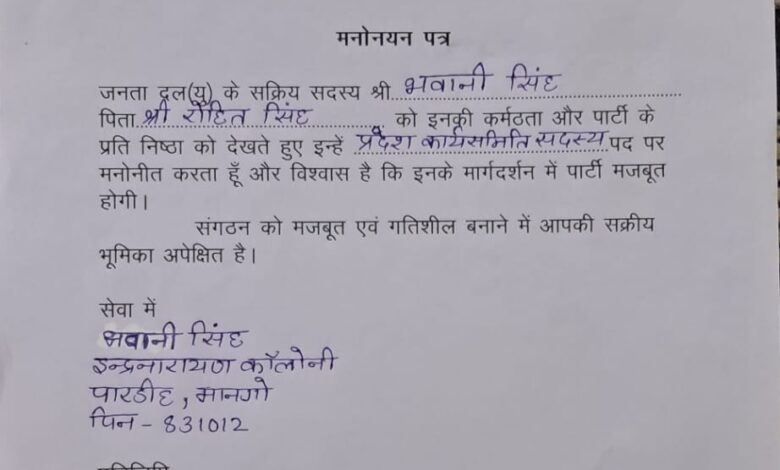 मनोनयन पत्र
जनता दल(यु) के सक्रिय सदस्य श्री भवानी सिंह
पिता श्री रोहित सिंह को इनकी कर्मठता और पार्टी के
प्रति निष्ठा को देखते हुए इन्हें प्रदेश कार्यसमिति सदस्य पद पर
मनोनीत करता हूँ और विश्वास है कि इनके मार्गदर्शन में पार्टी मजबूत
होगी।
संगठन को मजबूत एवं गतिशील बनाने में आपकी सक्रीय
भूमिका अपेक्षित है।
सेवा में
भवानी सिंह
इन्द्रनारायण कॉलोनी
पारडीह, मानगो
पिन - 831012